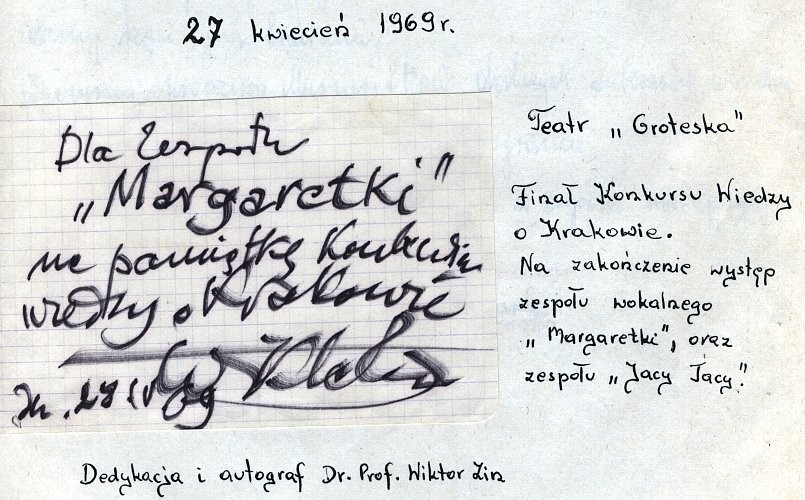 27 kwiecień 1969 r.
Dla Zespołu
„Margaretki"
na pamiątkę Konkursu
wiedzy o Krakowie
27 IV 69
Teatr „Groteska"
Finał Konkursu Wiedzy
o Krakowie.
Na zakończenie występ
zespołu wokalnego
„Margaretki", oraz
zespołu „Jacy Tacy".
Dedykacja i autograf Dr. Prof. Wiktor Zin